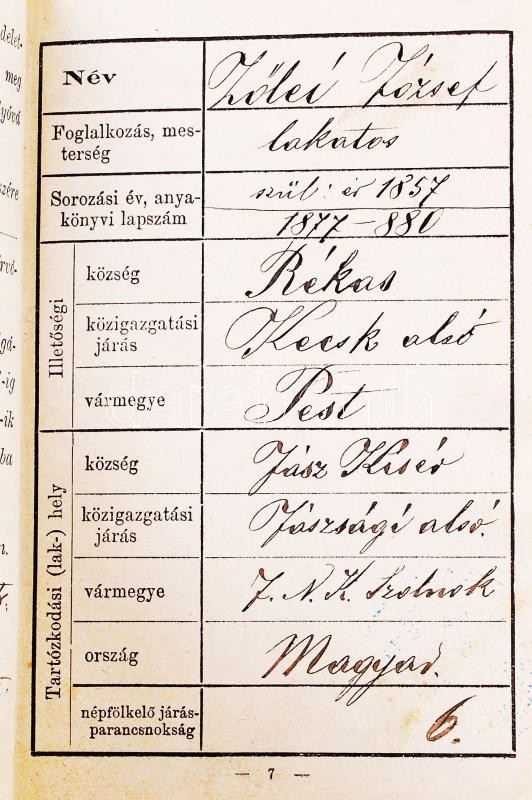 delet-
meg
Név
József
Foglalkozás, mes-
terség
lakatos
Sorozási év, anya-
könyvi lapszám
szül: év 1857
1877-880
Illetőségi
község
Rékas
közigazgatási
járás
Kecsk alsó
vármegye
Pest
Tartózkodási (lak-) hely
község
Jász Kisér
közigazgatási
járás
Jászsági alsó.
vármegye
J. N. K. Szolnok
ország
Magyar.
népfölkelő járás-
parancsnokság
6.
— 7 —